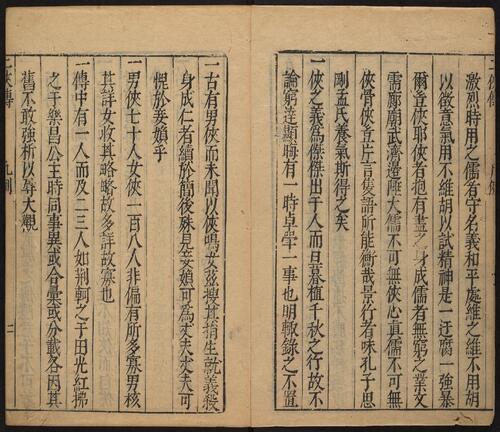 激烈時用之儒者守名義和平處維之維不用胡
以徵意氣用不維胡以試精神是一迂腐一強暴
爾豈俠耶俠者抱有盡之身成儒者無窮之業文
需廊廟武濟邉陲大儒不可無俠心真儒不可無
俠骨俠豈片言隻語所能衡哉景行者味孔子思
剛孟氏養氣斯得之矣
一俠之義為傑傑出千人而旦暮植千秋之行故不
論窮達顯晦有一時卓犖一事也明輙錄之不置
一古有男俠而未聞以俠鳴女茲搜其捐生就義殺
身成仁者續於簡後殊見妾媍可為丈夫丈夫可
愧於妾媍乎
一男俠七十人女俠一百八人非偏有所多寡男核
其詳女收其略略故多詳故寡也
一傳中有一人而及二三人如荆軻之于田光紅拂
之于樂昌公主時同事異或合彚或分載各因其
舊不敢強析以辱大觀
二俠傳 凡例 二